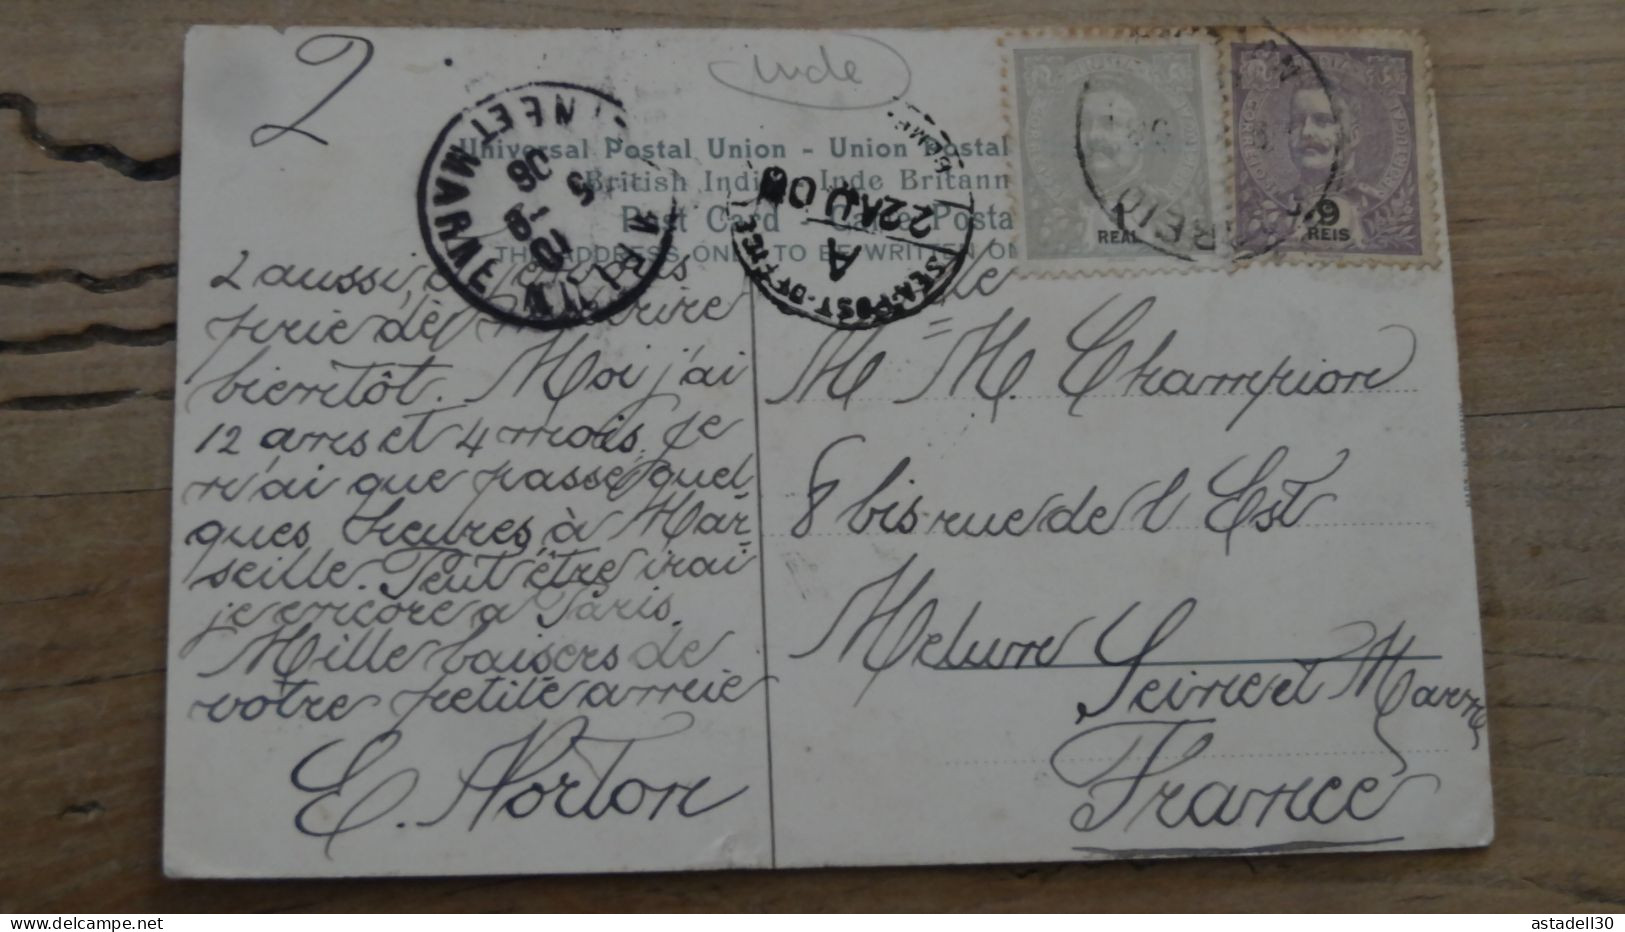 2
Inde
Universal Postal Union - Union Postal
British India Inde Britann
Post Card - Carte Posta
THE ADDRESS ONLY TO BE WRITTEN ON
MELUN
SEINE ET MARNE
10 - 9
5
06
SEA-POST-OFFICE
A
22 AU 06
1
REAL
9
REIS
2 aussi,
prie de m'écrire
bientôt. Moi j'ai
12 ans et 4 mois. Je
n'ai que passé quel
ques heures à Mar-
seille. Peut être irai
je encore a Paris.
Mille baisers de
votre petite amie
E. Norton
M M. Champion
8 bis rue de l Est
Melun
Seine et Marne
France
astadell30